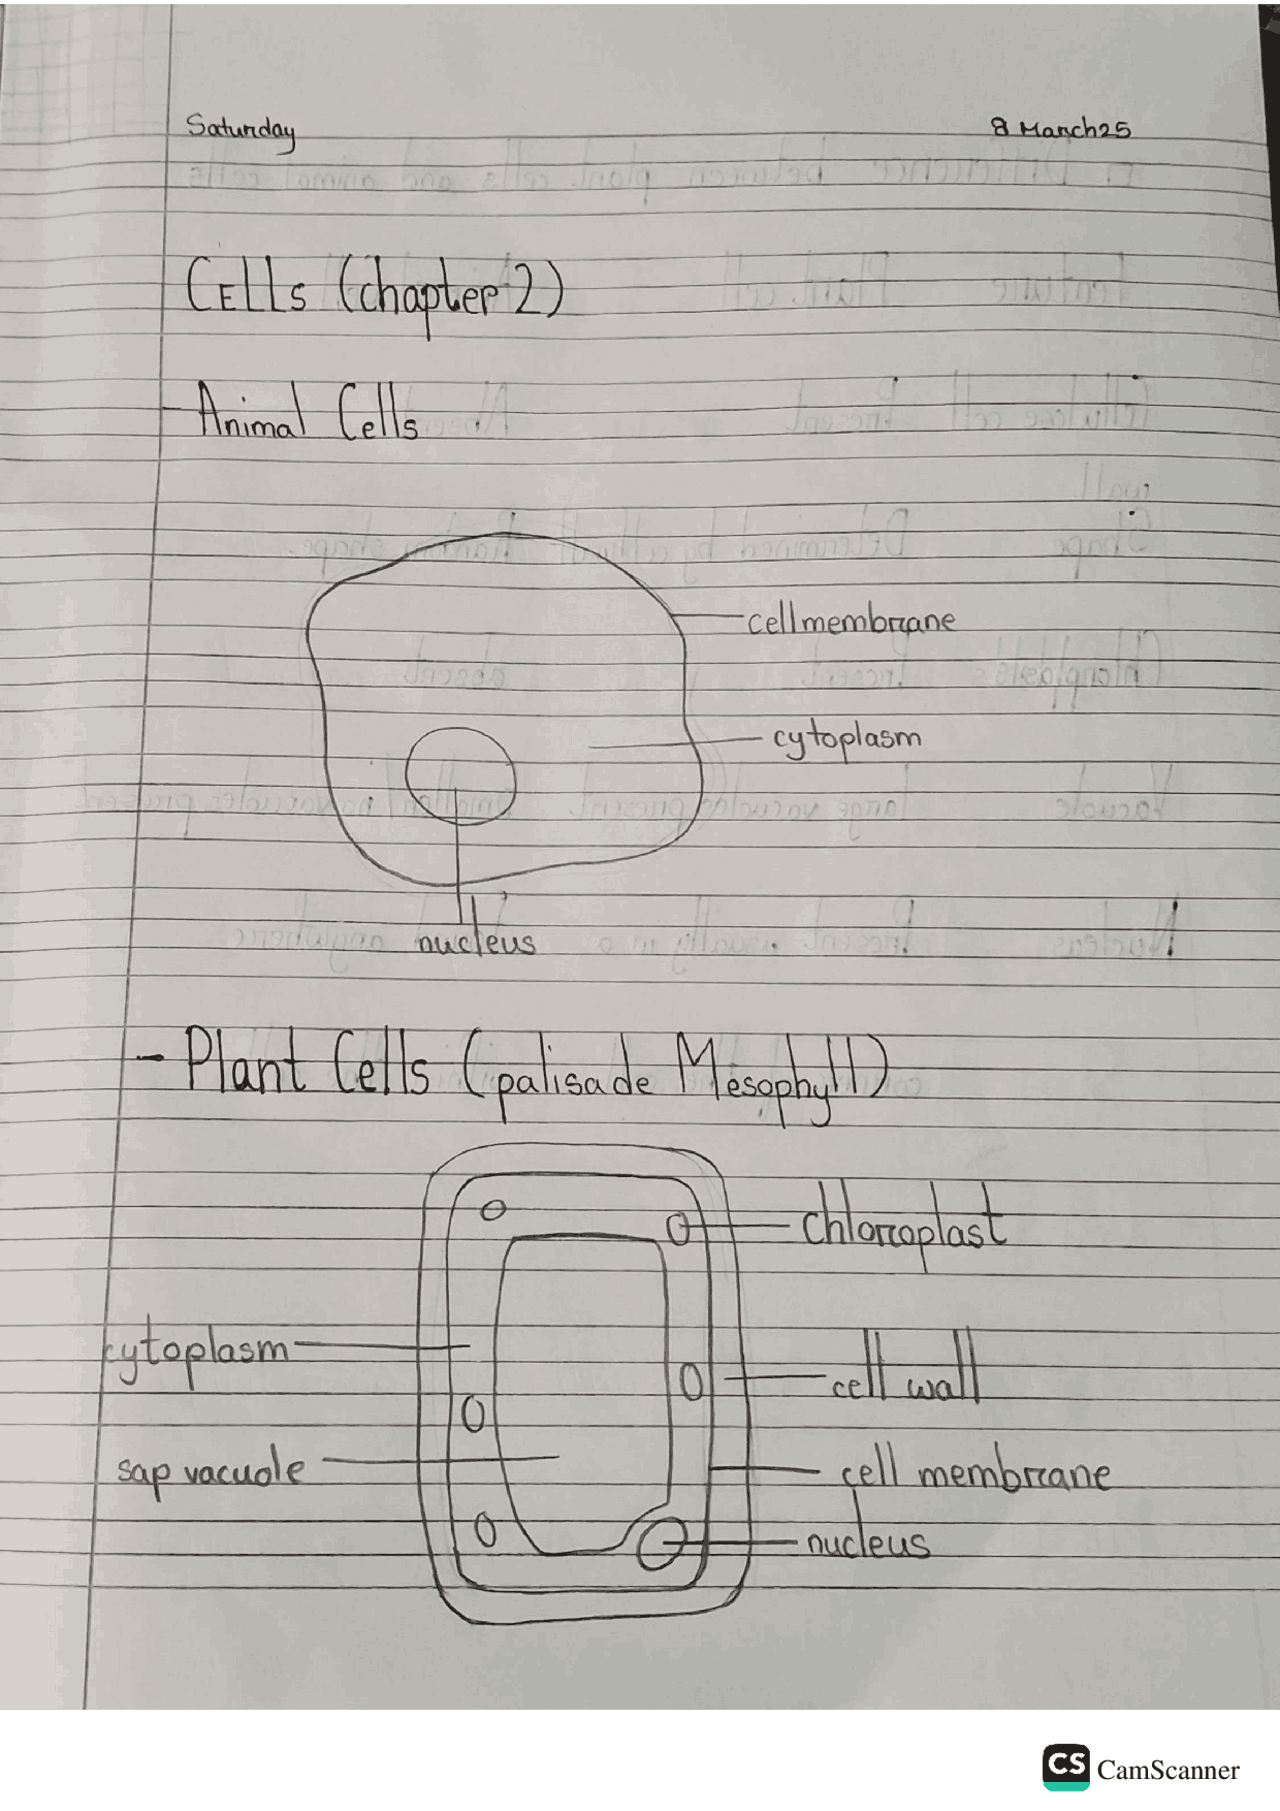 Saturday 8 March 25
Cells (chapter 2)
- Animal Cells
cell membrane
cytoplasm
nucleus
- Plant Cells (palisade Mesophyll)
chloroplast
cytoplasm
cell wall
sap vacuole
cell membrane
nucleus
CS CamScanner